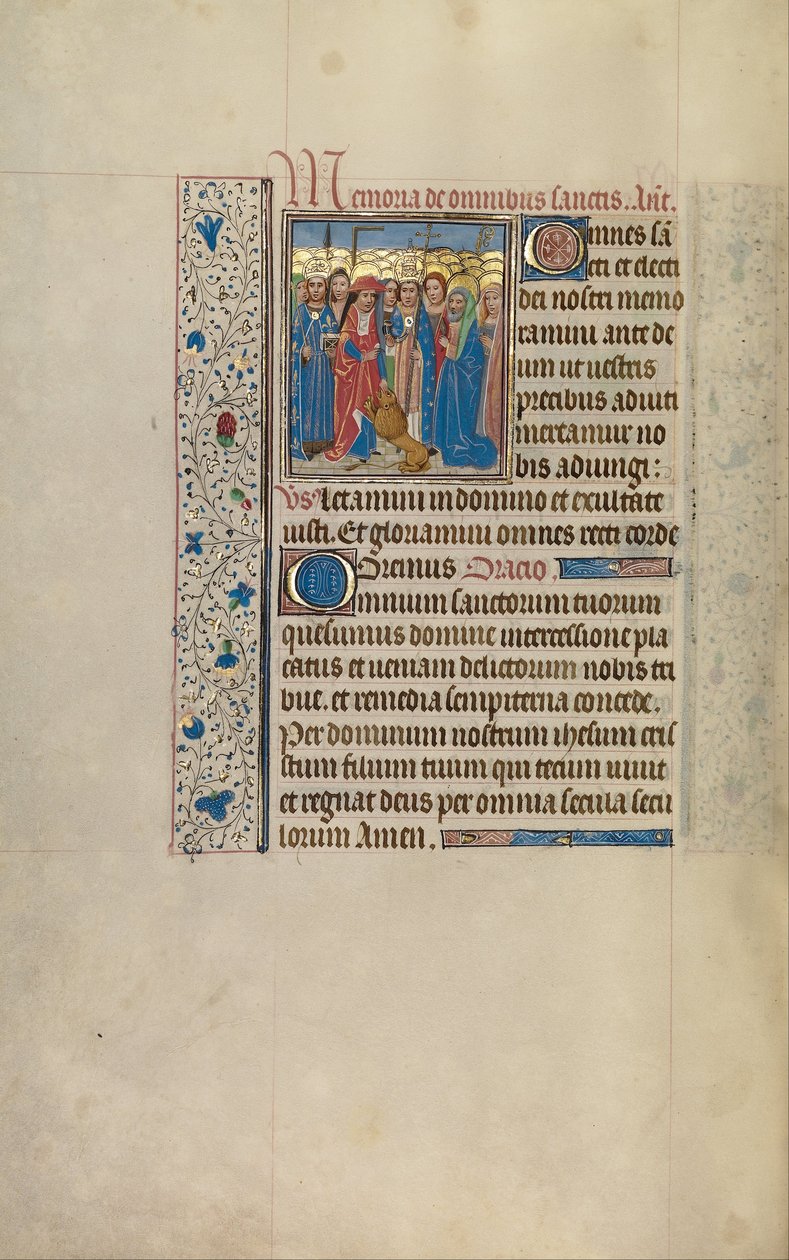 Memoria de omnibus sanctis. Ant.
Omnes sā
cti et electi
dei nostri memo
ramini ante de
um ut uestris
precibus adiuti
mereamur no
bis adiungi:
Vs Letamini in domino et exultate
iusti. Et gloriamini omnes recti corde
Oremus Oracio.
Omnium sanctorum tuorum
quesumus domine intercessione pla
catus et ueniam delictorum nobis tri
bue. et remedia sempiterna concede.
Per dominum nostrum ihesum cris
stum filium tuum qui tecum uiuit
et regnat deus per omnia secula secu
lorum Amen.